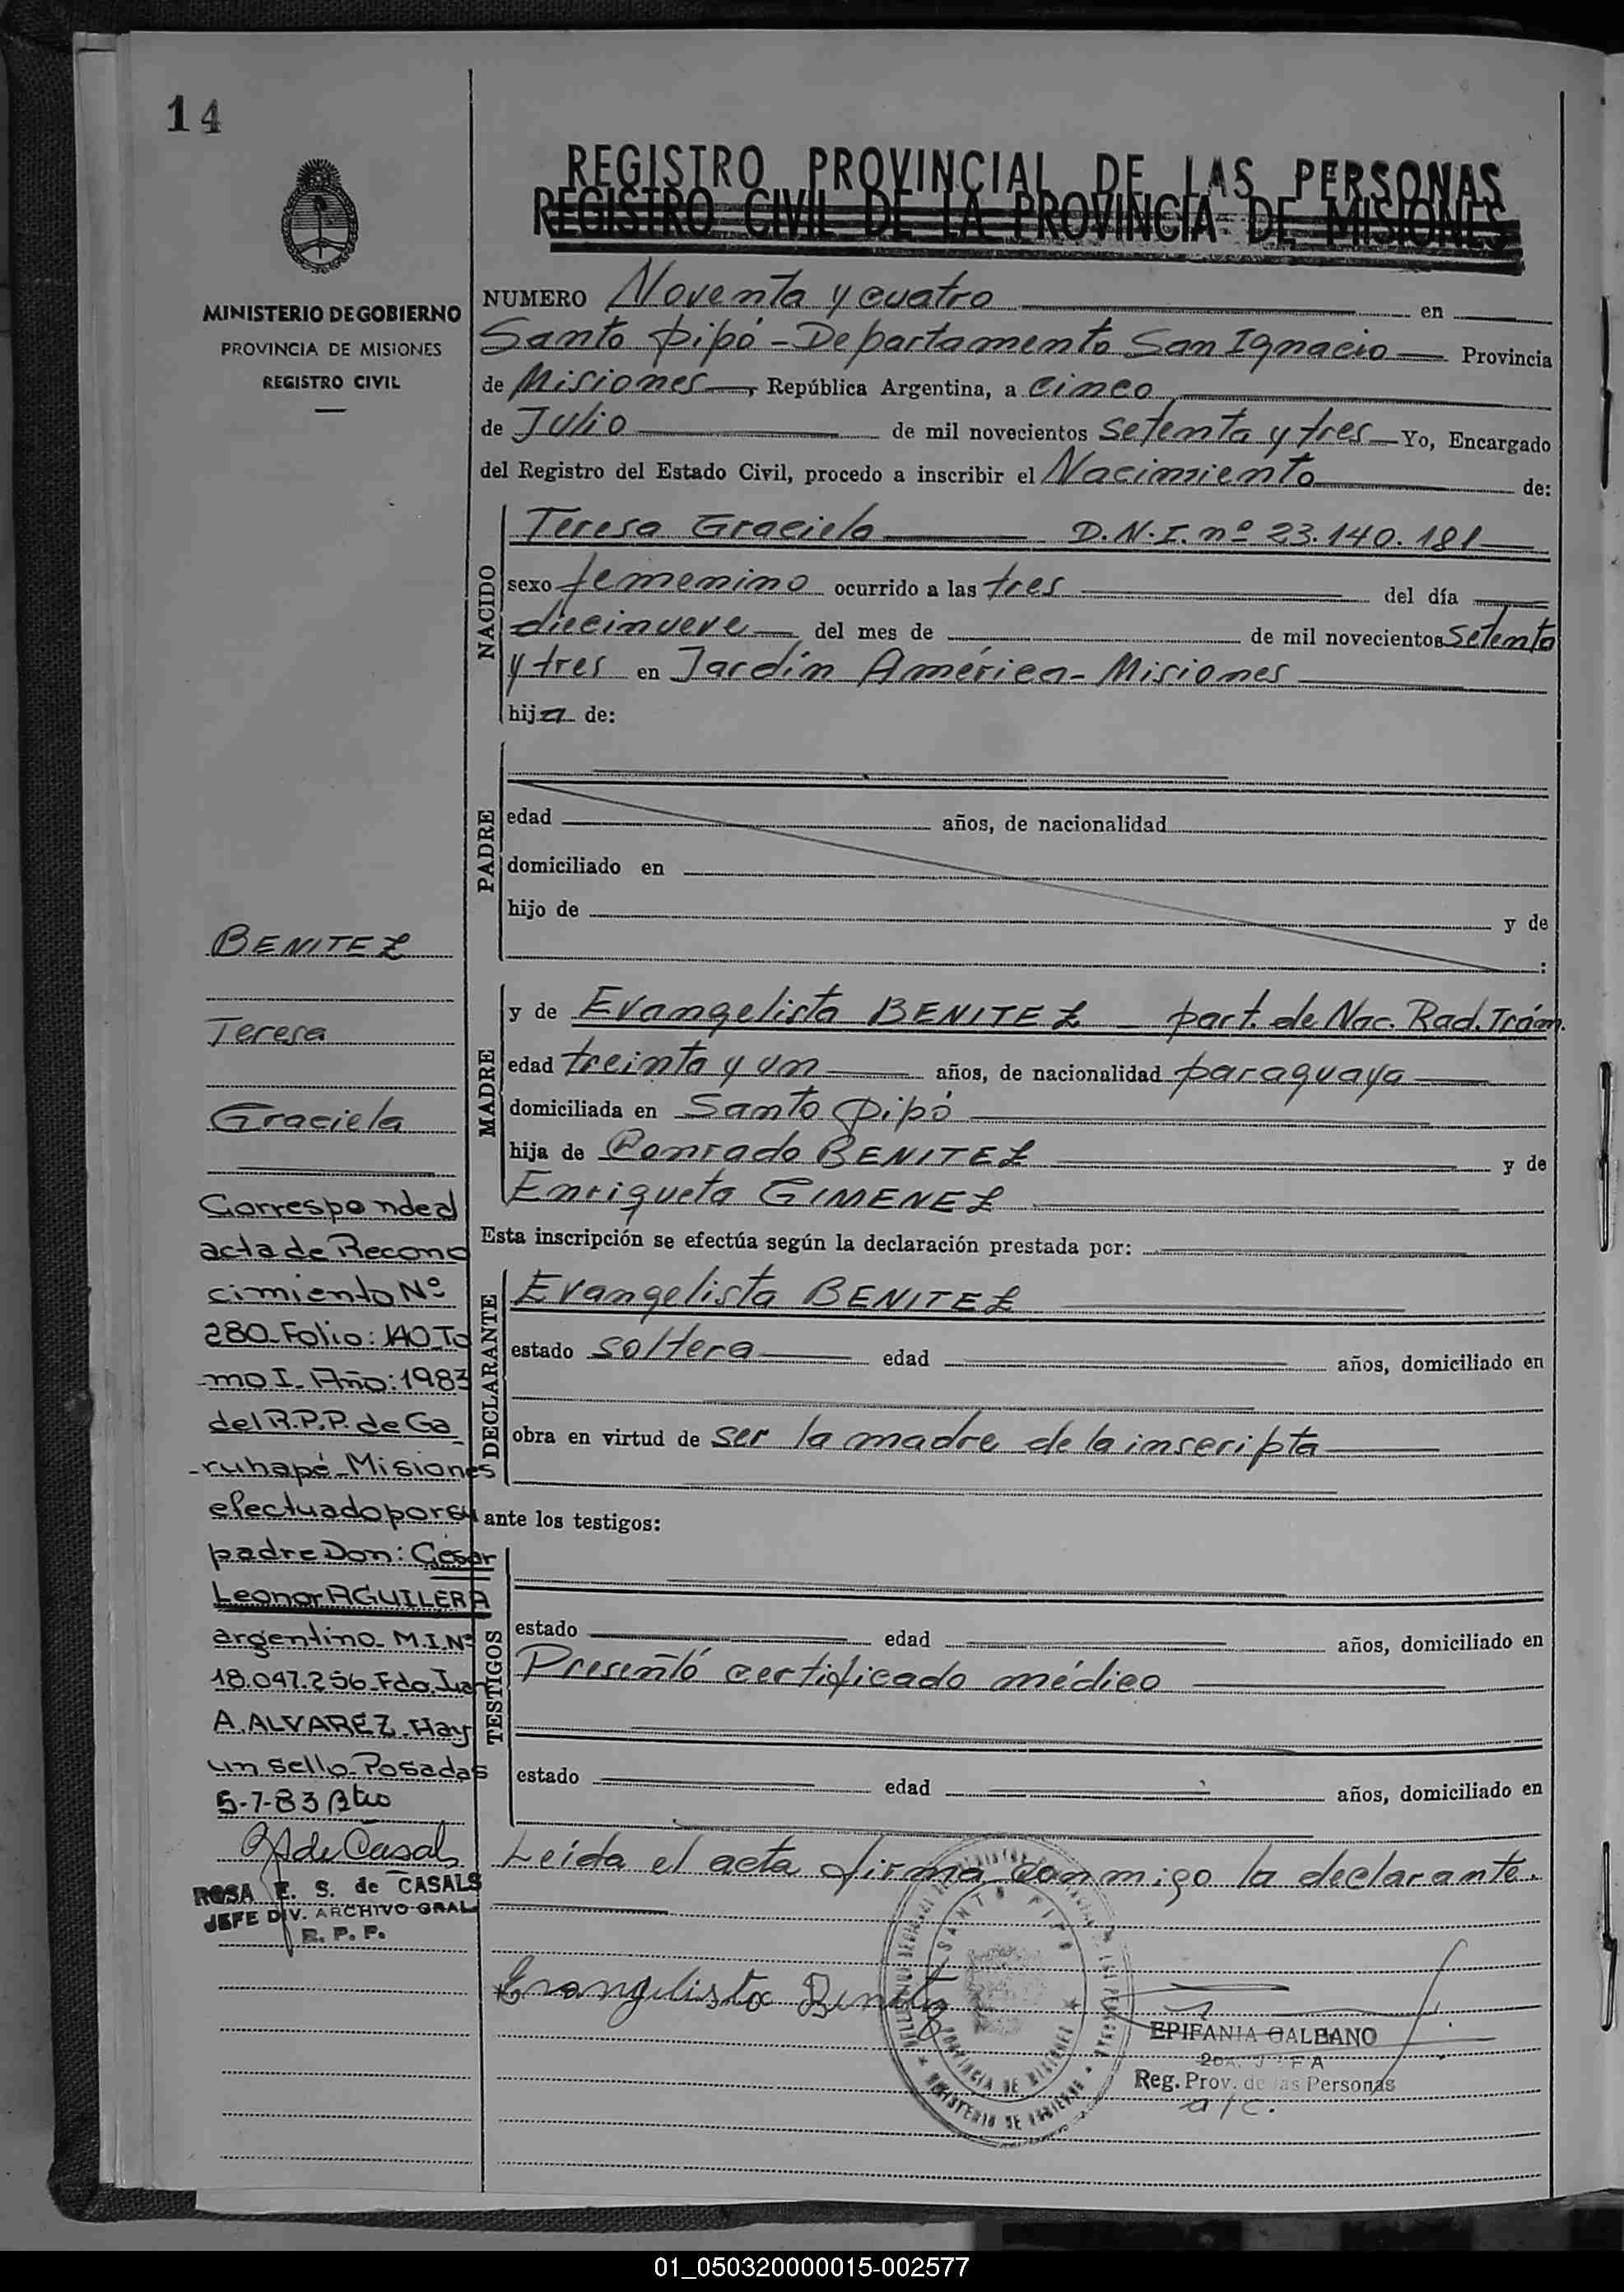 14
REGISTRO PROVINCIAL DE LAS PERSONAS
REGISTRO CIVIL DE LA PROVINCIA DE MISIONES
MINISTERIO DE GOBIERNO
PROVINCIA DE MISIONES
REGISTRO CIVIL
NUMERO Noventa y cuatro en
Santo Pipó - Departamento San Ignacio Provincia
de Misiones, República Argentina, a cinco
de Julio de mil novecientos setenta y tres Yo, Encargado
del Registro del Estado Civil, procedo a inscribir el Nacimiento de:
NACIDO
Teresa Graciela D.N.I. nº 23.140.181
sexo femenino ocurrido a las tres del día
diecinueve del mes de de mil novecientos setenta
y tres en Jardín América - Misiones
hija de:
PADRE
edad años, de nacionalidad
domiciliado en
hijo de y de
:
MADRE
y de Evangelista BENITEZ - part. de Nac. Rad. Trám.
edad treinta y un años, de nacionalidad paraguaya
domiciliada en Santo Pipó
hija de Conrado BENITEZ y de
Enriqueta GIMENEZ
Esta inscripción se efectúa según la declaración prestada por:
DECLARANTE
Evangelista BENITEZ
estado soltera edad años, domiciliado en
obra en virtud de ser la madre de la inscripta
ante los testigos:
TESTIGOS
estado edad años, domiciliado en
Presentó certificado médico
estado edad años, domiciliado en
Leída el acta firma conmigo la declarante.
Evangelista Benitez
SANTO PIPO
PROVINCIA DE MISIONES
MINISTERIO DE GOBIERNO
EPIFANIA GALEANO
2da. JEFA
Reg. Prov. de las Personas
a/c.
BENITEZ
Teresa
Graciela
Corresponde al
acta de Recono
cimiento Nº
280_Folio: 140 To
mo I_ Año: 1983
del R.P.P. de Ga_
ruhapé_Misiones
efectuado por su
padre Don: César
Leonor AGUILERA
argentino_ M.I.Nº
18.047.256_Fdo. Juan
A. ALVAREZ_Hay
un sello_Posadas
5-7-83
ROSA E. S. de CASALS
JEFE DIV. ARCHIVO GRAL
R. P. P.
01_050320000015-002577